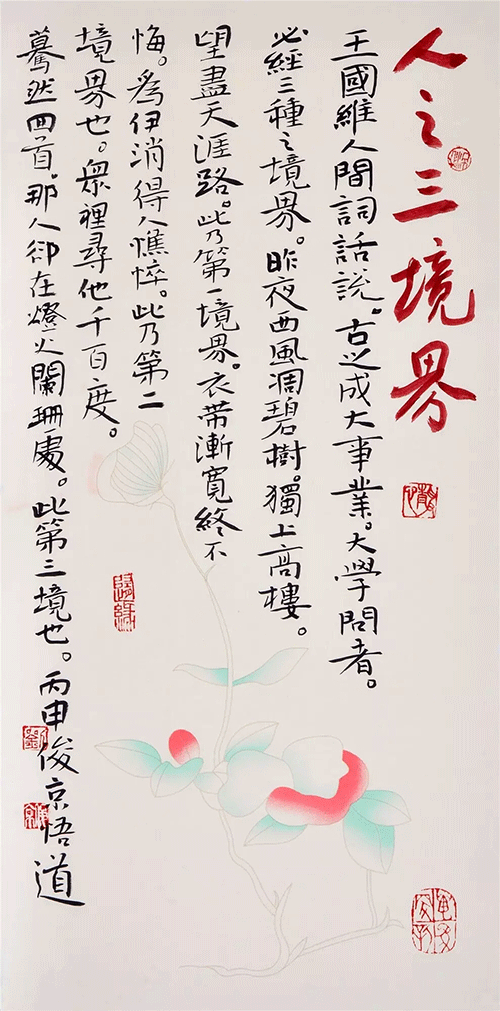 人之三境界
王國維人間詞話說。古之成大事業。大學問者。
必經三種之境界。昨夜西風凋碧樹。獨上高樓。
望盡天涯路。此乃第一境界。衣帶漸寬終不
悔。為伊消得人憔悴。此乃第二
境界也。眾裡尋他千百度。
驀然回首。那人卻在燈火闌珊處。此第三境也。丙申俊京悟道
隨緣